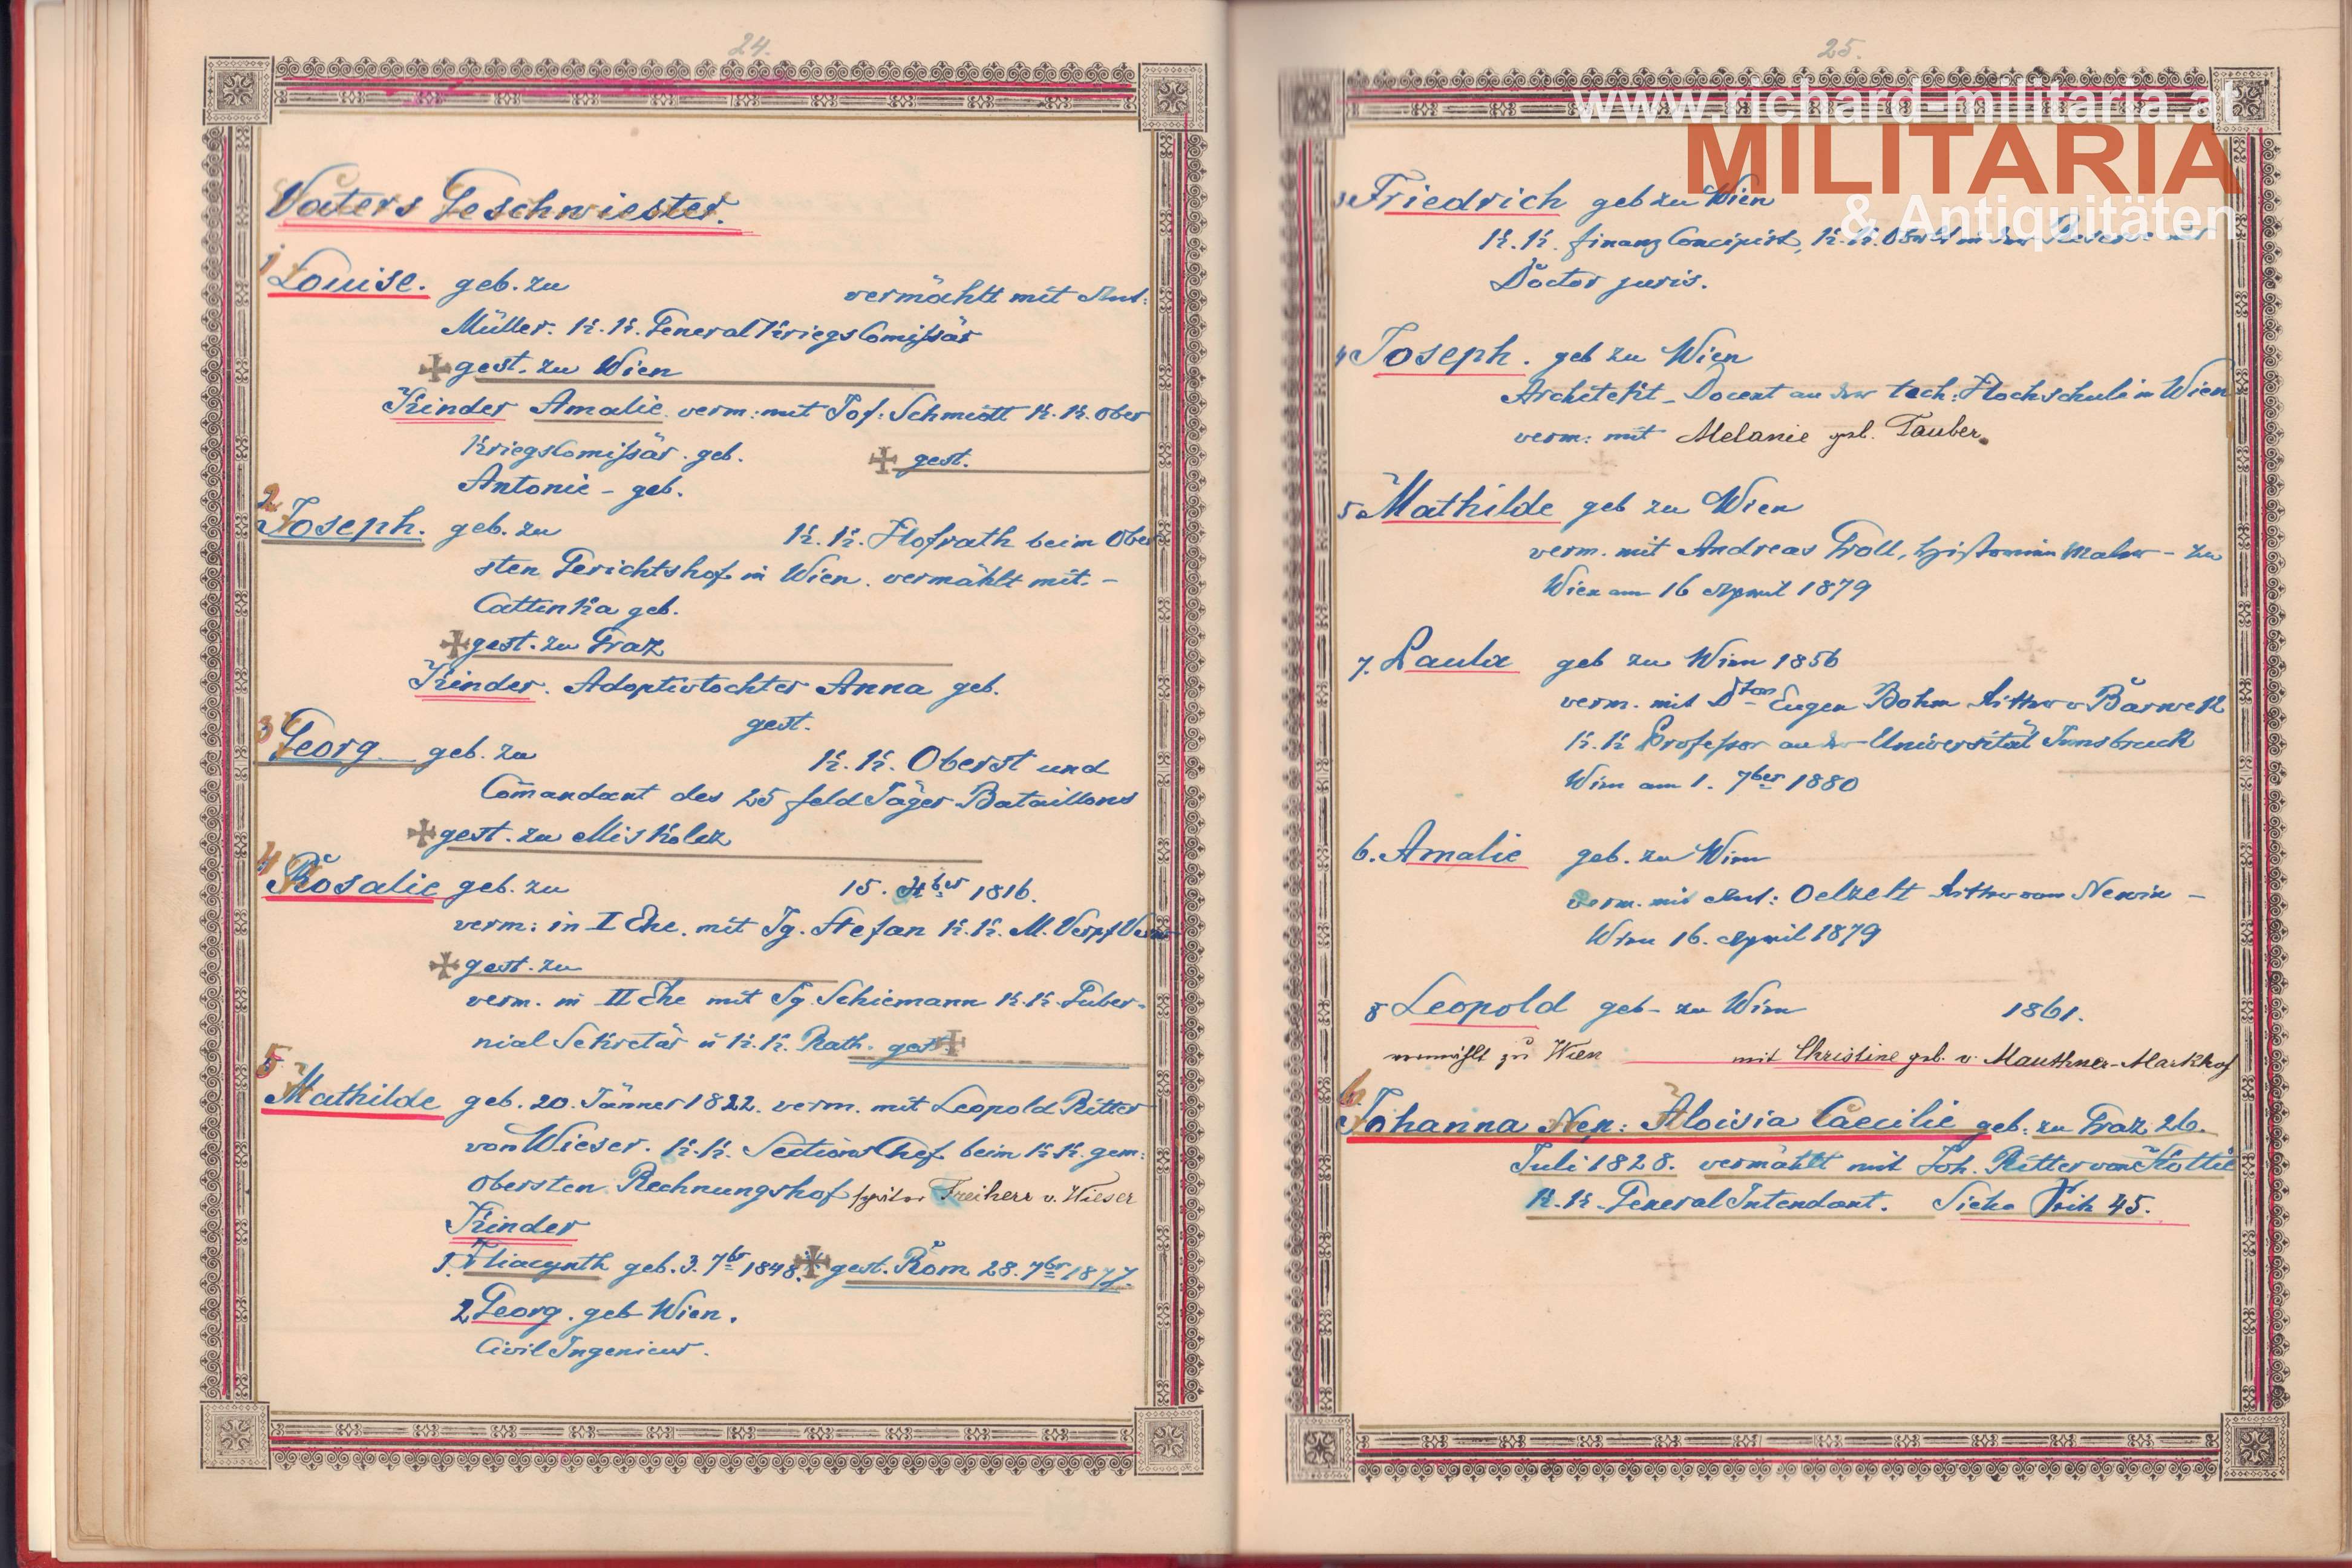 24.
Vaters Geschwister.
1 Louise. geb. zu vermählt mit Ant:
Müller. K. K. General Kriegs Comißär
gest. zu Wien
Kinder Amalie verm: mit Jos: Schmidt K. K. Ober
Kriegs Comißär. geb. gest.
Antonie - geb.
2 Joseph. geb. zu K. K. Hofrath beim Ober
sten Gerichtshof in Wien. vermählt mit -
Cattinka geb.
gest. zu Graz
Kinder. Adoptivtochter Anna geb.
gest.
3 Georg geb. zu K. K. Oberst und
Com̄andant des 25 Feld Jäger Bataillons
gest. zu Miskolcz
4 Rosalie geb. zu 15. 1816.
verm: in I Ehe. mit Ig. Stefan K. K. M. Verpf
gest. zu
verm. in II Ehe mit Ig. Schiemann K. K. Guber-
nial Sekretär u K. K. Rath. gest
5 Mathilde geb. 20. Jänner 1822. verm. mit Leopold Ritter
von Wieser. K. K. Sections Chef beim K K. gem:
Obersten Rechnungshof später Freiherr v. Wieser
Kinder
1. Hiacynth geb. 3. 7br 1848. gest. Rom 28. 7br 1877.
2 Georg. geb Wien.
Civil Ingenieur.
25.
www.richard-militaria.at
MILITARIA
& Antiquitäten
3 Friedrich geb zu Wien
K. K. Finanz Concipist, K. K. in der Reserve
Doctor juris.
4 Joseph. geb zu Wien
Architekt - Docent an der tech: Hochschule in Wien
verm: mit Melanie geb. Tauber
5 Mathilde geb zu Wien
verm. mit Andreas Groll, Historien Maler - zu
Wien am 16 April 1879
7. Paula geb zu Wien 1856
verm. mit Dtor Eugen Bohm Ritter v Bawerk
K. K Professor an der Universität Innsbruck
Wien am 1. 7ber 1880
6. Amalie geb. zu Wien
verm. mit Ant: Oelzelt Ritter von Newin -
Wien 16. April 1879
8 Leopold geb - zu Wien 1861.
vermählt zu Wien mit Christine geb. v. Mauthner-Markhof
6. Johanna Nep: Aloisia Caecilie geb: zu Graz 26.
Juli 1828. vermählt mit Joh. Ritter von
K. K. General Intendant. Siehe 45.